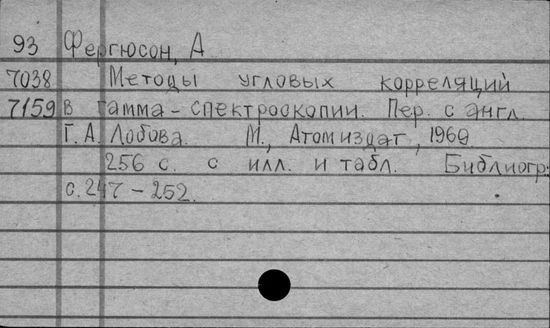 93 Фергюсон, А
7038 Методы угловых корреляций
7159 в гамма-спектроскопии. Пер. с англ.
Г. А. Лобова. М., Атомиздат, 1969
256 с. с илл. и табл. Библиогр:
с. 247 - 252.